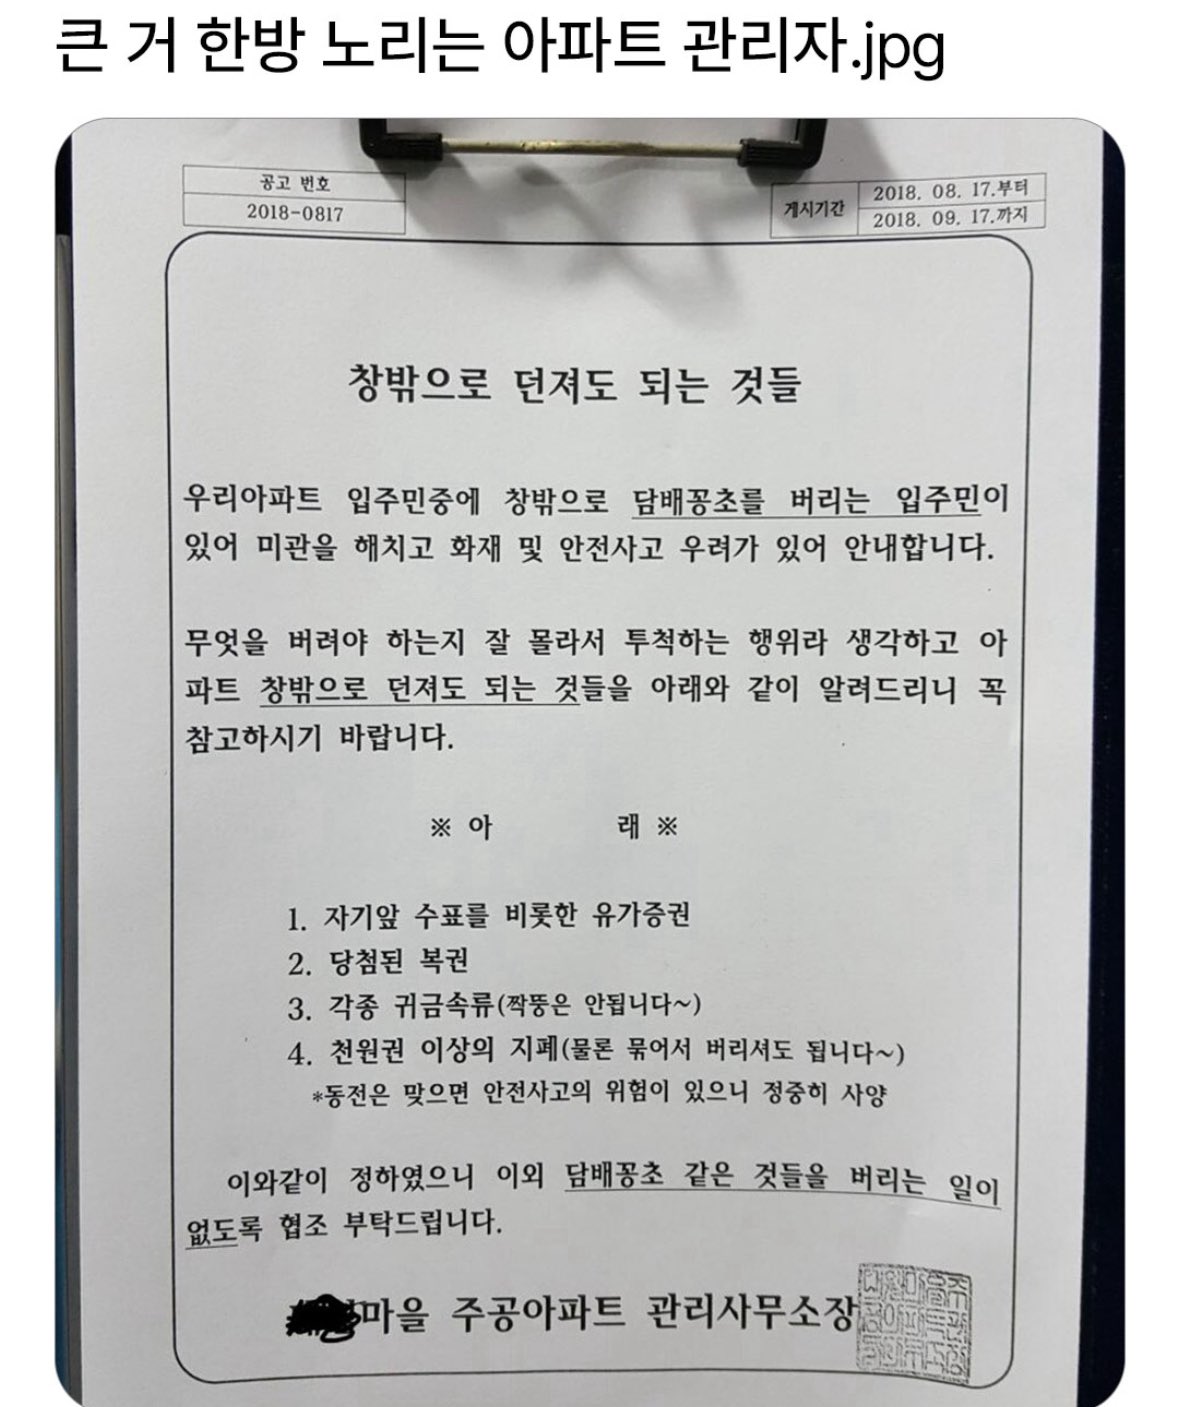 큰 거 한방 노리는 아파트 관리자.jpg
공고 번호
2018-0817
게시기간
2018. 08. 17.부터
2018. 09. 17.까지
창밖으로 던져도 되는 것들
우리아파트 입주민중에 창밖으로 담배꽁초를 버리는 입주민이
있어 미관을 해치고 화재 및 안전사고 우려가 있어 안내합니다.
무엇을 버려야 하는지 잘 몰라서 투척하는 행위라 생각하고 아
파트 창밖으로 던져도 되는 것들을 아래와 같이 알려드리니 꼭
참고하시기 바랍니다.
※ 아 래 ※
1. 자기앞 수표를 비롯한 유가증권
2. 당첨된 복권
3. 각종 귀금속류(짝뚱은 안됩니다~)
4. 천원권 이상의 지폐(물론 묶어서 버리셔도 됩니다~)
*동전은 맞으면 안전사고의 위험이 있으니 정중히 사양
이와같이 정하였으니 이외 담배꽁초 같은 것들을 버리는 일이
없도록 협조 부탁드립니다.
마을 주공아파트 관리사무소장